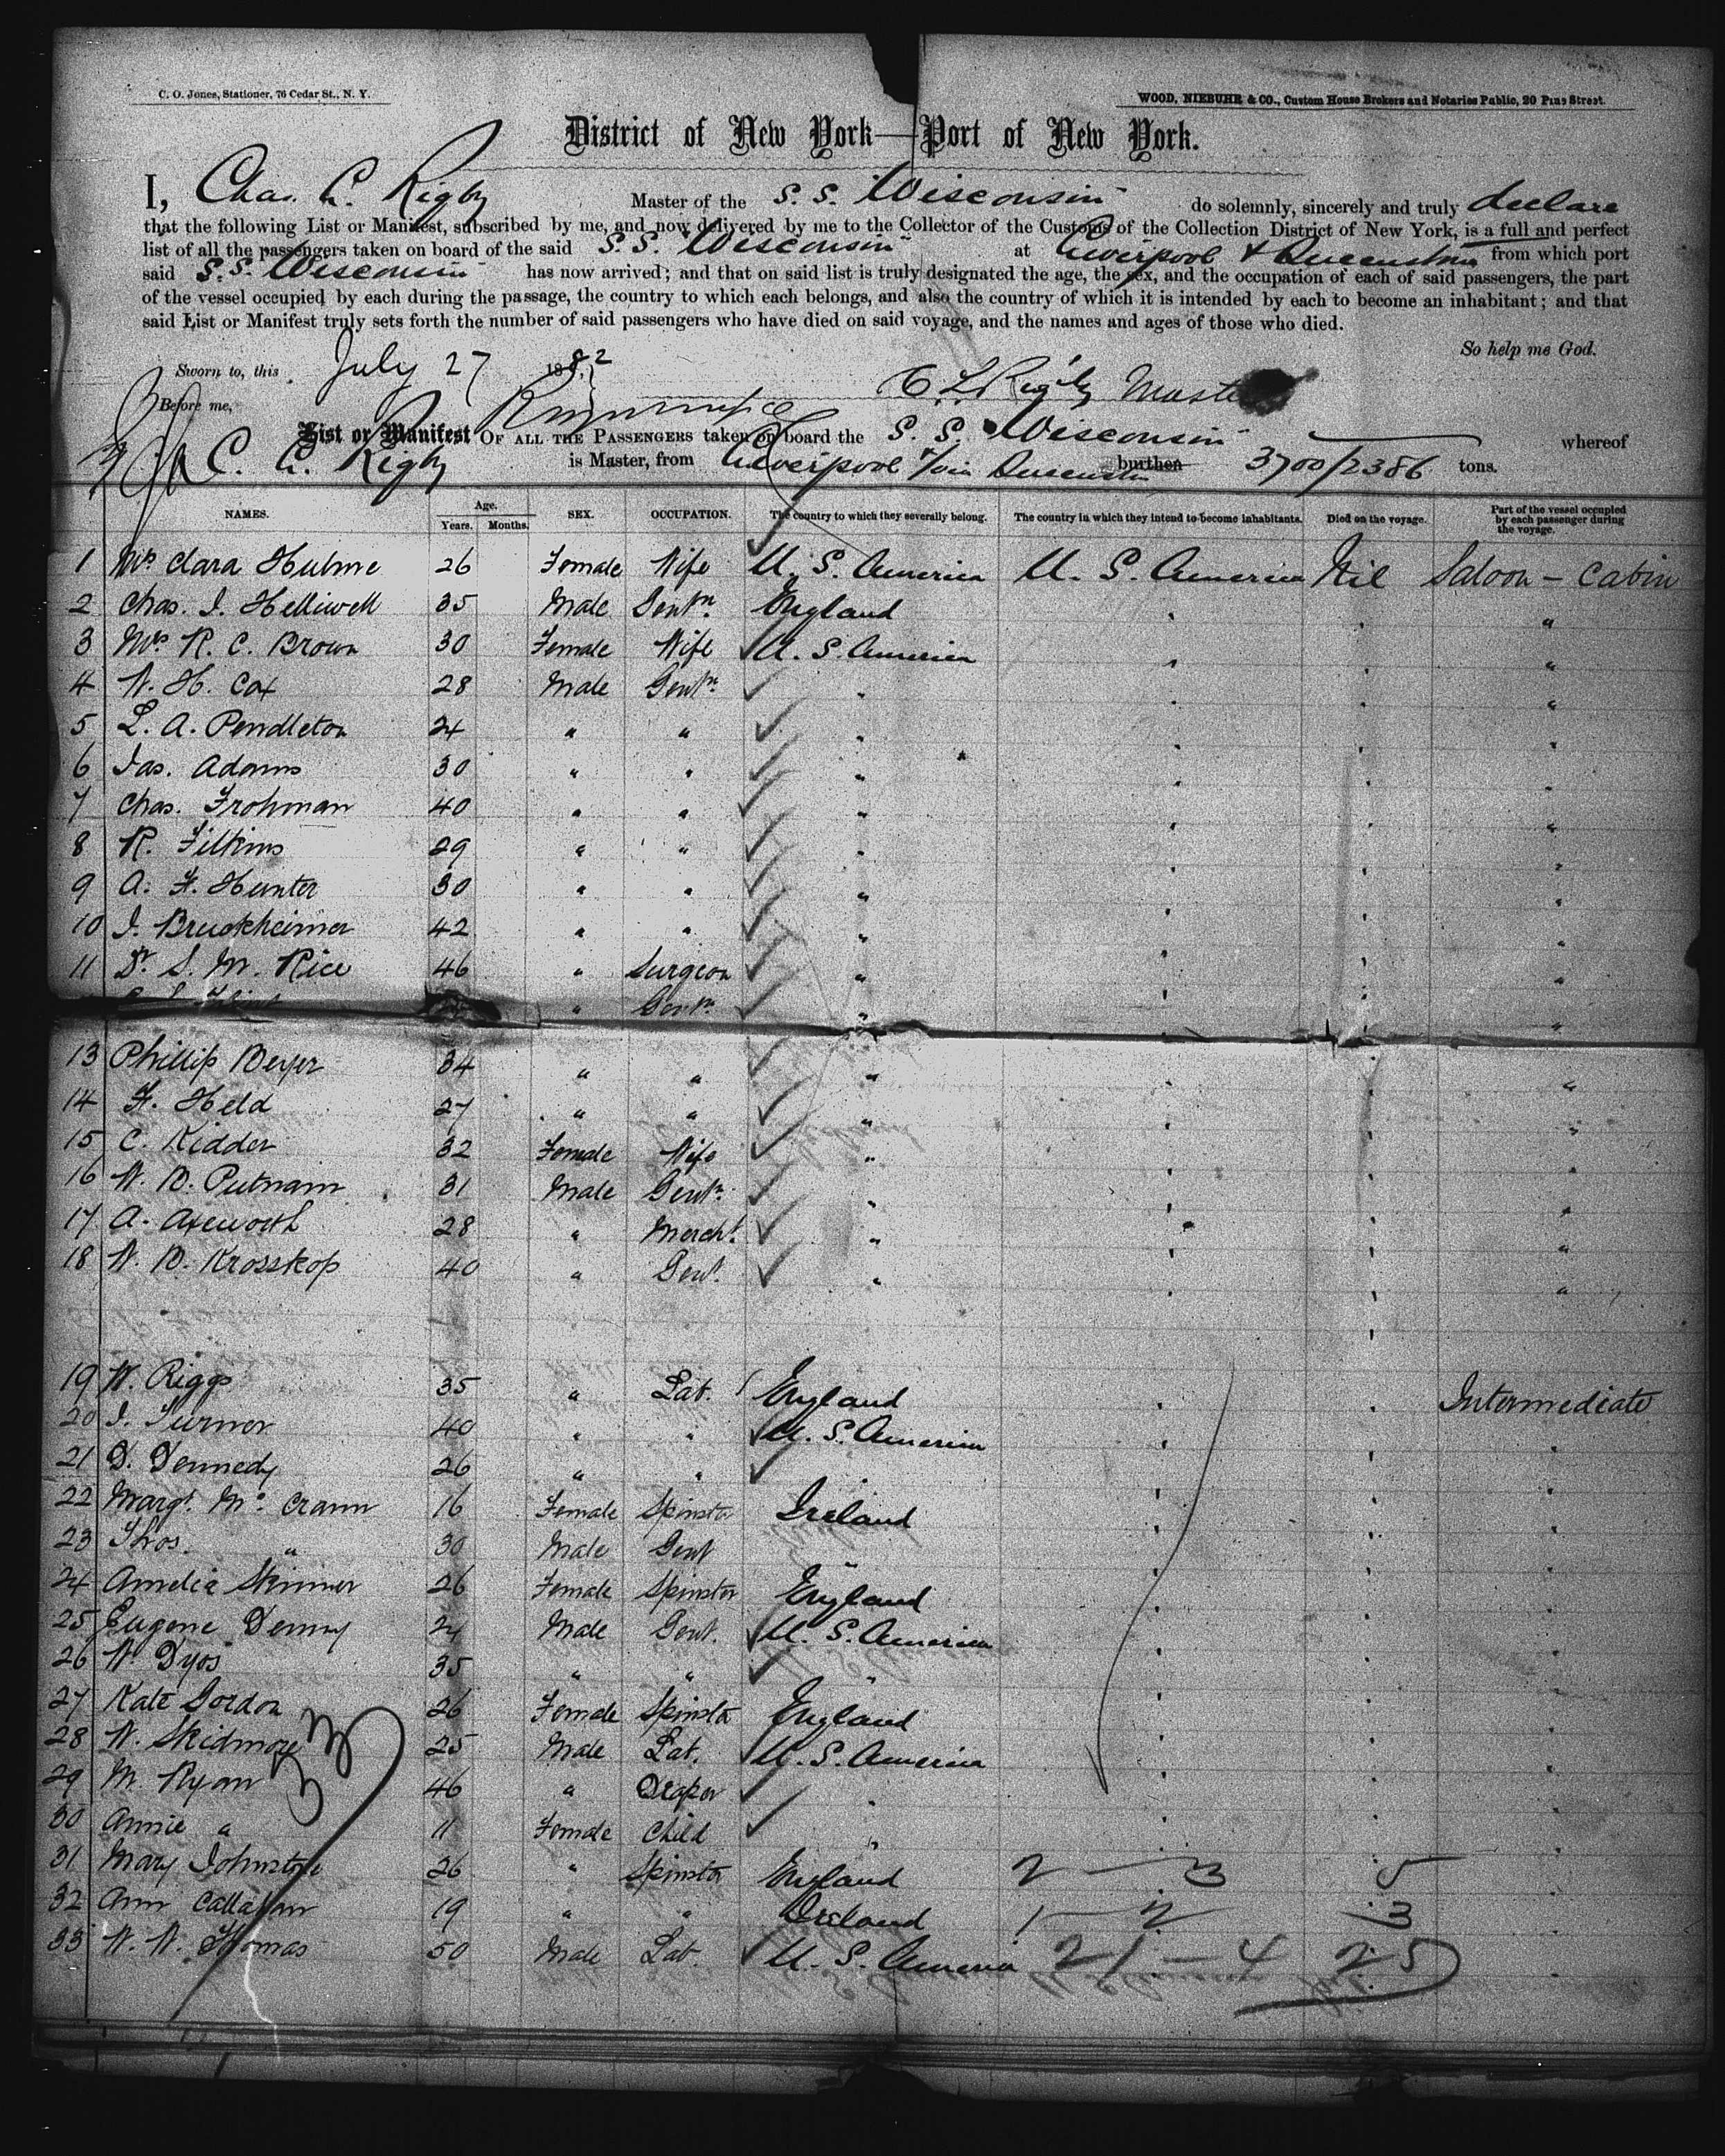 C. O. Jones, Stationer, 76 Cedar St., N. Y.
WOOD, NIEBUHR & CO., Custom House Brokers and Notaries Public, 20 Pine Street.
District of New York—Port of New York.
I, Chas. L. Rigby Master of the S. S. Wisconsin do solemnly, sincerely and truly declare
that the following List or Manifest, subscribed by me, and now delivered by me to the Collector of the Customs of the Collection District of New York, is a full and perfect
list of all the passengers taken on board of the said S. S. "Wisconsin" at Liverpool & Queenstown from which port
said S. S. Wisconsin has now arrived; and that on said list is truly designated the age, the sex, and the occupation of each of said passengers, the part
of the vessel occupied by each during the passage, the country to which each belongs, and also the country of which it is intended by each to become an inhabitant; and that
said List or Manifest truly sets forth the number of said passengers who have died on said voyage, and the names and ages of those who died.
So help me God.
Sworn to, this July 27 1882
C L Rigby Master
Before me,
List or Manifest OF ALL THE PASSENGERS taken on board the S. S. Wisconsin whereof
C. L. Rigby is Master, from Liverpool via Queenstn burthen 3700/2386 tons.
NAMES. Age. Years. Months. SEX. OCCUPATION. The country to which they severally belong. The country in which they intend to become inhabitants. Died on the voyage. Part of the vessel occupied by each passenger during the voyage.
1 Mrs Clara Hulme 26 Female Wife U. S. America U. S. America Nil Saloon - Cabin
2 Chas. J. Helliwell 35 Male Gentn. England " " "
3 Mrs R. C. Brown 30 Female Wife U. S. America " " "
4 W. H. Cox 28 Male Gentn. " " " "
5 L. A. Pendleton 24 " " " " " "
6 Jas. Adams 30 " " " " " "
7 Chas. Frohman 40 " " " " " "
8 R. Filkins 29 " " " " " "
9 A. F. Hunter 30 " " " " " "
10 J. Bruckheimer 42 " " " " " "
11 Dr S. M. Rice 46 " Surgeon " " " "
" Gentn. " " " "
13 Phillip Beyer 34 " " " " " "
14 F. Held 27 " " " " " "
15 C. Kidder 32 Female Wife " " " "
16 W. B. Putnam 31 Male Gentn. " " " "
17 A. Axeworth 28 " Mercht. " " " "
18 W. B. Krosskop 40 " Gent. " " " "
19 W. Riggs 35 " Lab. England " " Intermediate
20 J. Turner 40 " " U. S. America " " "
21 D. Dennedy 26 " " " " " "
22 Margt. Mc. Crann 16 Female Spinster Ireland " " "
23 Thos. " 30 Male Gent " " " "
24 Amelia Skinner 26 Female Spinster England " " "
25 Eugene Denny 24 Male Gent. U. S. America " " "
26 W. Dyos 35 " " " " " "
27 Kate Gordon 26 Female Spinster England " " "
28 W. Skidmore 25 Male Lab. U. S. America " " "
29 M. Ryan 46 " Draper " " " "
30 Annie " 11 Female Child " " " "
31 Mary Johnstone 26 " Spinster England 2 — 3 5 "
32 Ann Callahan 19 " " Ireland 1 — 2 3 "
33 W. W. Thomas 50 Male Lab. U. S. America 21 — 4 25 "
33